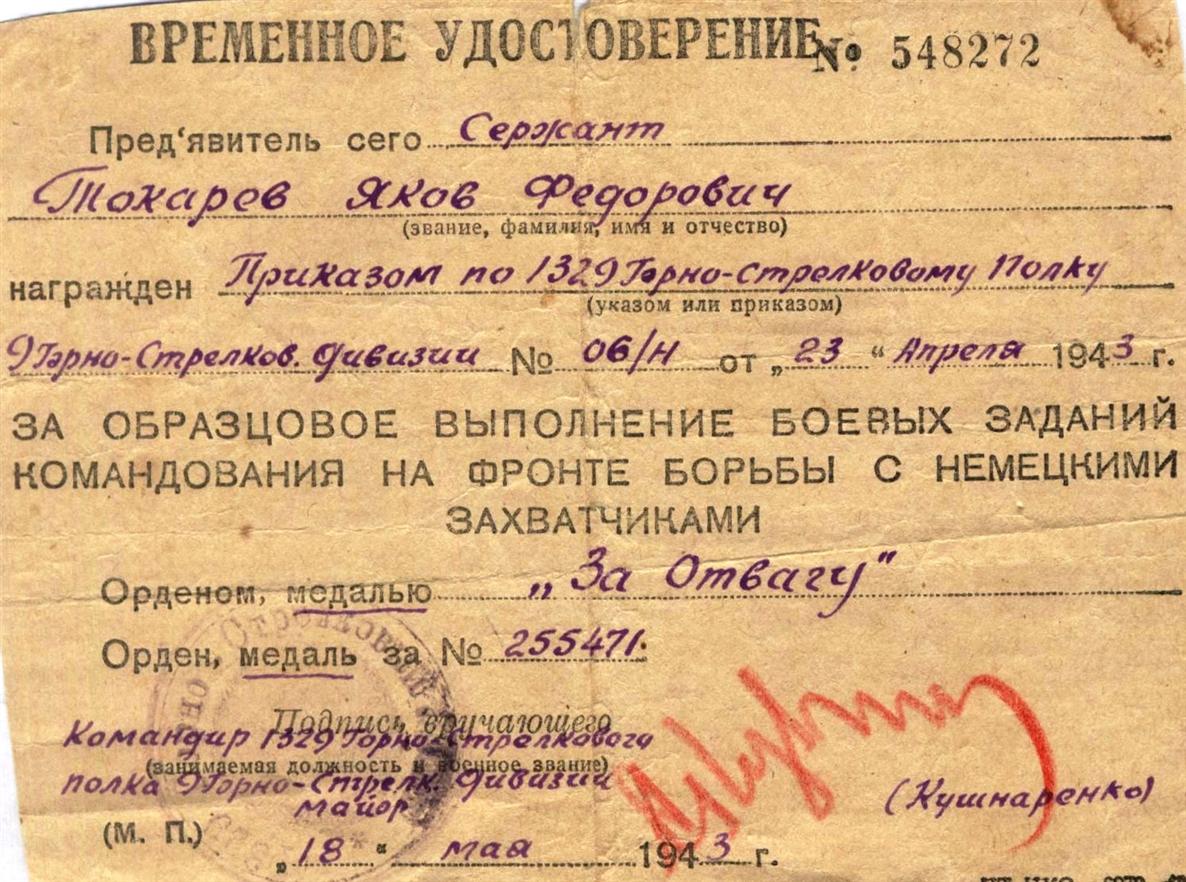 ВРЕМЕННОЕ УДОСТОВЕРЕНИЕ № 548272
Пред'явитель сего Сержант
Токарев Яков Федорович
(звание, фамилия, имя и отчество)
награжден Приказом по 1329 Горно-стрелковому Полку
(указом или приказом)
9 Горно-Стрелков. дивизии № 06/Н от „23“ Апреля 1943 г.
ЗА ОБРАЗЦОВОЕ ВЫПОЛНЕНИЕ БОЕВЫХ ЗАДАНИЙ
КОМАНДОВАНИЯ НА ФРОНТЕ БОРЬБЫ С НЕМЕЦКИМИ
ЗАХВАТЧИКАМИ
Орденом, медалью „За Отвагу"
Орден, медаль за № 255471.
Подпись вручающего
Командир 1329 Горно-Стрелкового
(занимаемая должность и военное звание)
полка 9 Горно-Стрелк. дивизии
майор (Кушнаренко)
(М. П.)
„18“ мая 1943 г.